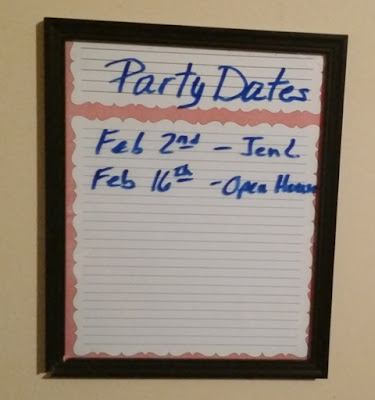 Party Dates
Feb 2nd - Jen L
Feb 16th - Open House